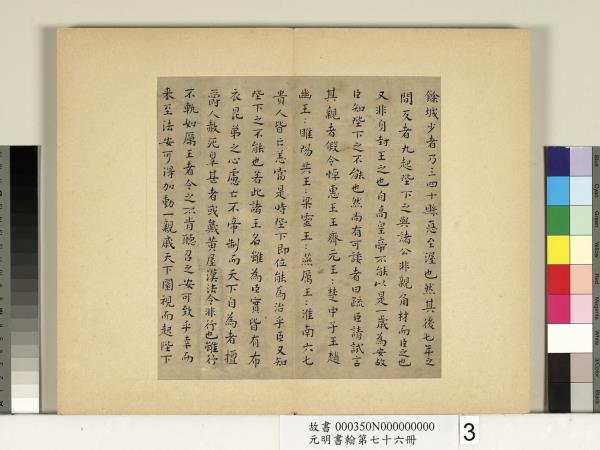 餘城少者乃三四十縣惪至渥也然其後七年之
間反者九起陛下之與諸公非親角材而臣之也
又非身封王之也自高皇帝不能以是一歲為安故
臣知陛下之不能也然尚有可諉者曰疏臣請試言
其親者假令悼惠王王齊元王王楚中子王趙
幽王王睢陽共王王梁靈王王燕厲王王淮南六七
貴人皆亡恙當是時陛下即位能為治乎臣又知
陛下之不能也若此諸王名雖為臣實皆有布
衣昆弟之心慮亡不帝制而天下自為者擅
爵人赦死辠甚者或戴黃屋漢法令非行也雖行
不軌如厲王者令之不肯聽召之安可致乎幸而
來至法安可得加動一親戚天下圜視而起陛下
故書 000350N000000000
元明書翰第七十六冊
3
Blue
Cyan
Green
Yellow
Red
Magenta
White
3/Color
Black